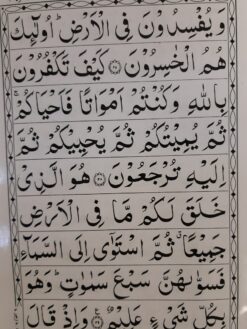 وَ يُفْسِدُوْنَ فِى الْاَرْضِ ؕ اُولٰٓئِكَ
هُمُ الْخٰسِرُوْنَ ﴿۲۷﴾ كَيْفَ تَكْفُرُوْنَ
بِاللّٰهِ وَكُنْتُمْ اَمْوَاتًا فَاَحْيَاكُمْ ۚ
ثُمَّ يُمِيْتُكُمْ ثُمَّ يُحْيِيْكُمْ ثُمَّ
اِلَيْهِ تُرْجَعُوْنَ ﴿۲۸﴾ هُوَ الَّذِىْ
خَلَقَ لَكُمْ مَّا فِى الْاَرْضِ
جَمِيْعًا ۗ ثُمَّ اسْتَوٰٓى اِلَى السَّمَآءِ
فَسَوّٰىهُنَّ سَبْعَ سَمٰوٰتٍ ؕ وَهُوَ
بِكُلِّ شَىْءٍ عَلِيْمٌ ﴿۲۹﴾ وَاِذْ قَالَ